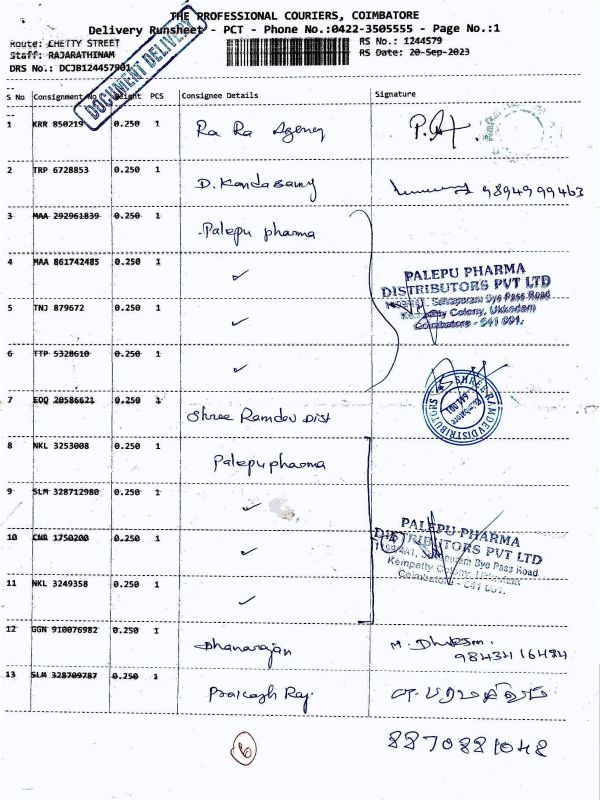 THE PROFESSIONAL COURIERS, COIMBATORE
Delivery Runsheet - PCT - Phone No.:0422-3505555 - Page No.:1
Route: CHETTY STREET RS No.: 1244579
Staff: RAJARATHINAM RS Date: 20-Sep-2023
DRS No.: DCJB124457901
DOCUMENT DELIVERY
S No Consignment No Weight PCS Consignee Details Signature
1 KRR 850219 0.250 1 Ra Ra Agency
2 TRP 6728853 0.250 1 D. Kandasamy 9894999463
3 MAA 292961839 0.250 1 Palepu pharma
4 MAA 861742485 0.250 1 ✓
PALEPU PHARMA
DISTRIBUTORS PVT LTD
Selvapuram Bye Pass Road
Kempatty Colony, Ukkadam
Coimbatore - 641 001.
5 TNJ 879672 0.250 1 ✓
6 TTP 5328610 0.250 1 ✓
7 EDQ 20586621 0.250 1 Shree Ramdev Dist
SHREE RAMDEV DISTRIBUTORS
8 NKL 3253008 0.250 1 Palepu pharma
9 SLM 328712980 0.250 1 ✓
PALEPU PHARMA
DISTRIBUTORS PVT LTD
Bye Pass Road
Kempatty Colony, Ukkadam
Coimbatore - 641 001.
10 CNR 1750200 0.250 1 ✓
11 NKL 3249358 0.250 1 ✓
12 GGN 910076982 0.250 1 Dhanarajan
9843416484
13 SLM 328709787 0.250 1 Prakash Raj.
8870881048